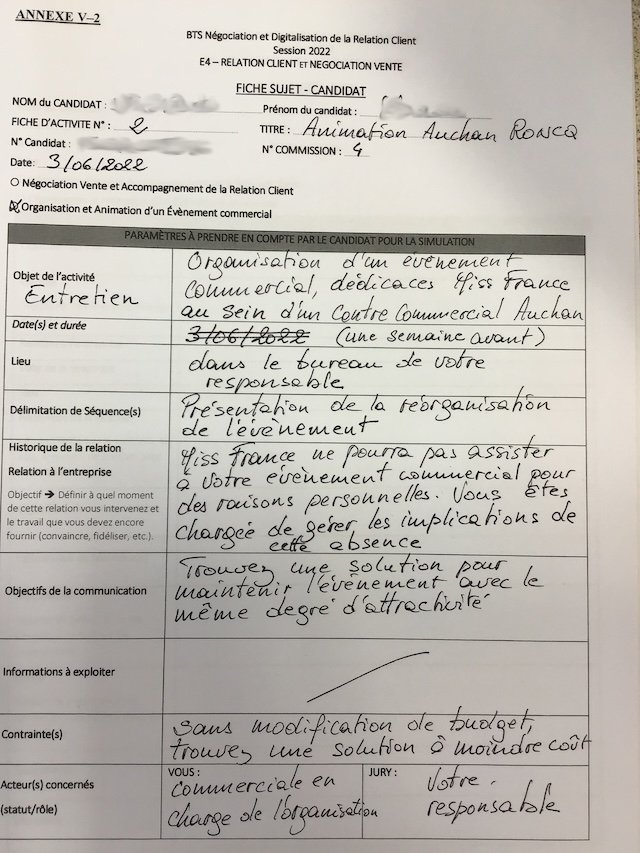 ANNEXE V–2
BTS Négociation et Digitalisation de la Relation Client
Session 2022
E4 – RELATION CLIENT ET NEGOCIATION VENTE
FICHE SUJET - CANDIDAT
NOM du CANDIDAT :
Prénom du candidat :
FICHE D'ACTIVITE N° : 2
TITRE : Animation Auchan RONCQ
N° Candidat :
N° COMMISSION : 4
Date: 3/06/2022
O Négociation Vente et Accompagnement de la Relation Client
Organisation et Animation d'un Évènement commercial
PARAMÈTRES À PRENDRE EN COMPTE PAR LE CANDIDAT POUR LA SIMULATION
Objet de l'activité
Entretien
Organisation d'un évènement
commercial, dédicaces Miss France
au sein d'un Centre Commercial Auchan
Date(s) et durée
3/06/2022 (une semaine avant)
Lieu
dans le bureau de votre
responsable
Délimitation de Séquence(s)
Présentation de la réorganisation
de l'évènement
Historique de la relation
Relation à l'entreprise
Objectif ➔ Définir à quel moment
de cette relation vous intervenez et
le travail que vous devez encore
fournir (convaincre, fidéliser, etc.).
Miss France ne pourra pas assister
à votre évènement commercial pour
des raisons personnelles. Vous êtes
chargée de gérer les implications de
cette absence
Objectifs de la communication
Trouvez une solution pour
maintenir l'évènement avec le
même degré d'attractivité
Informations à exploiter
Contrainte(s)
sans modification de budget,
trouvez une solution à moindre coût
Acteur(s) concernés
(statut/rôle)
VOUS :
commerciale en
charge de l'organisation
JURY :
Votre
responsable